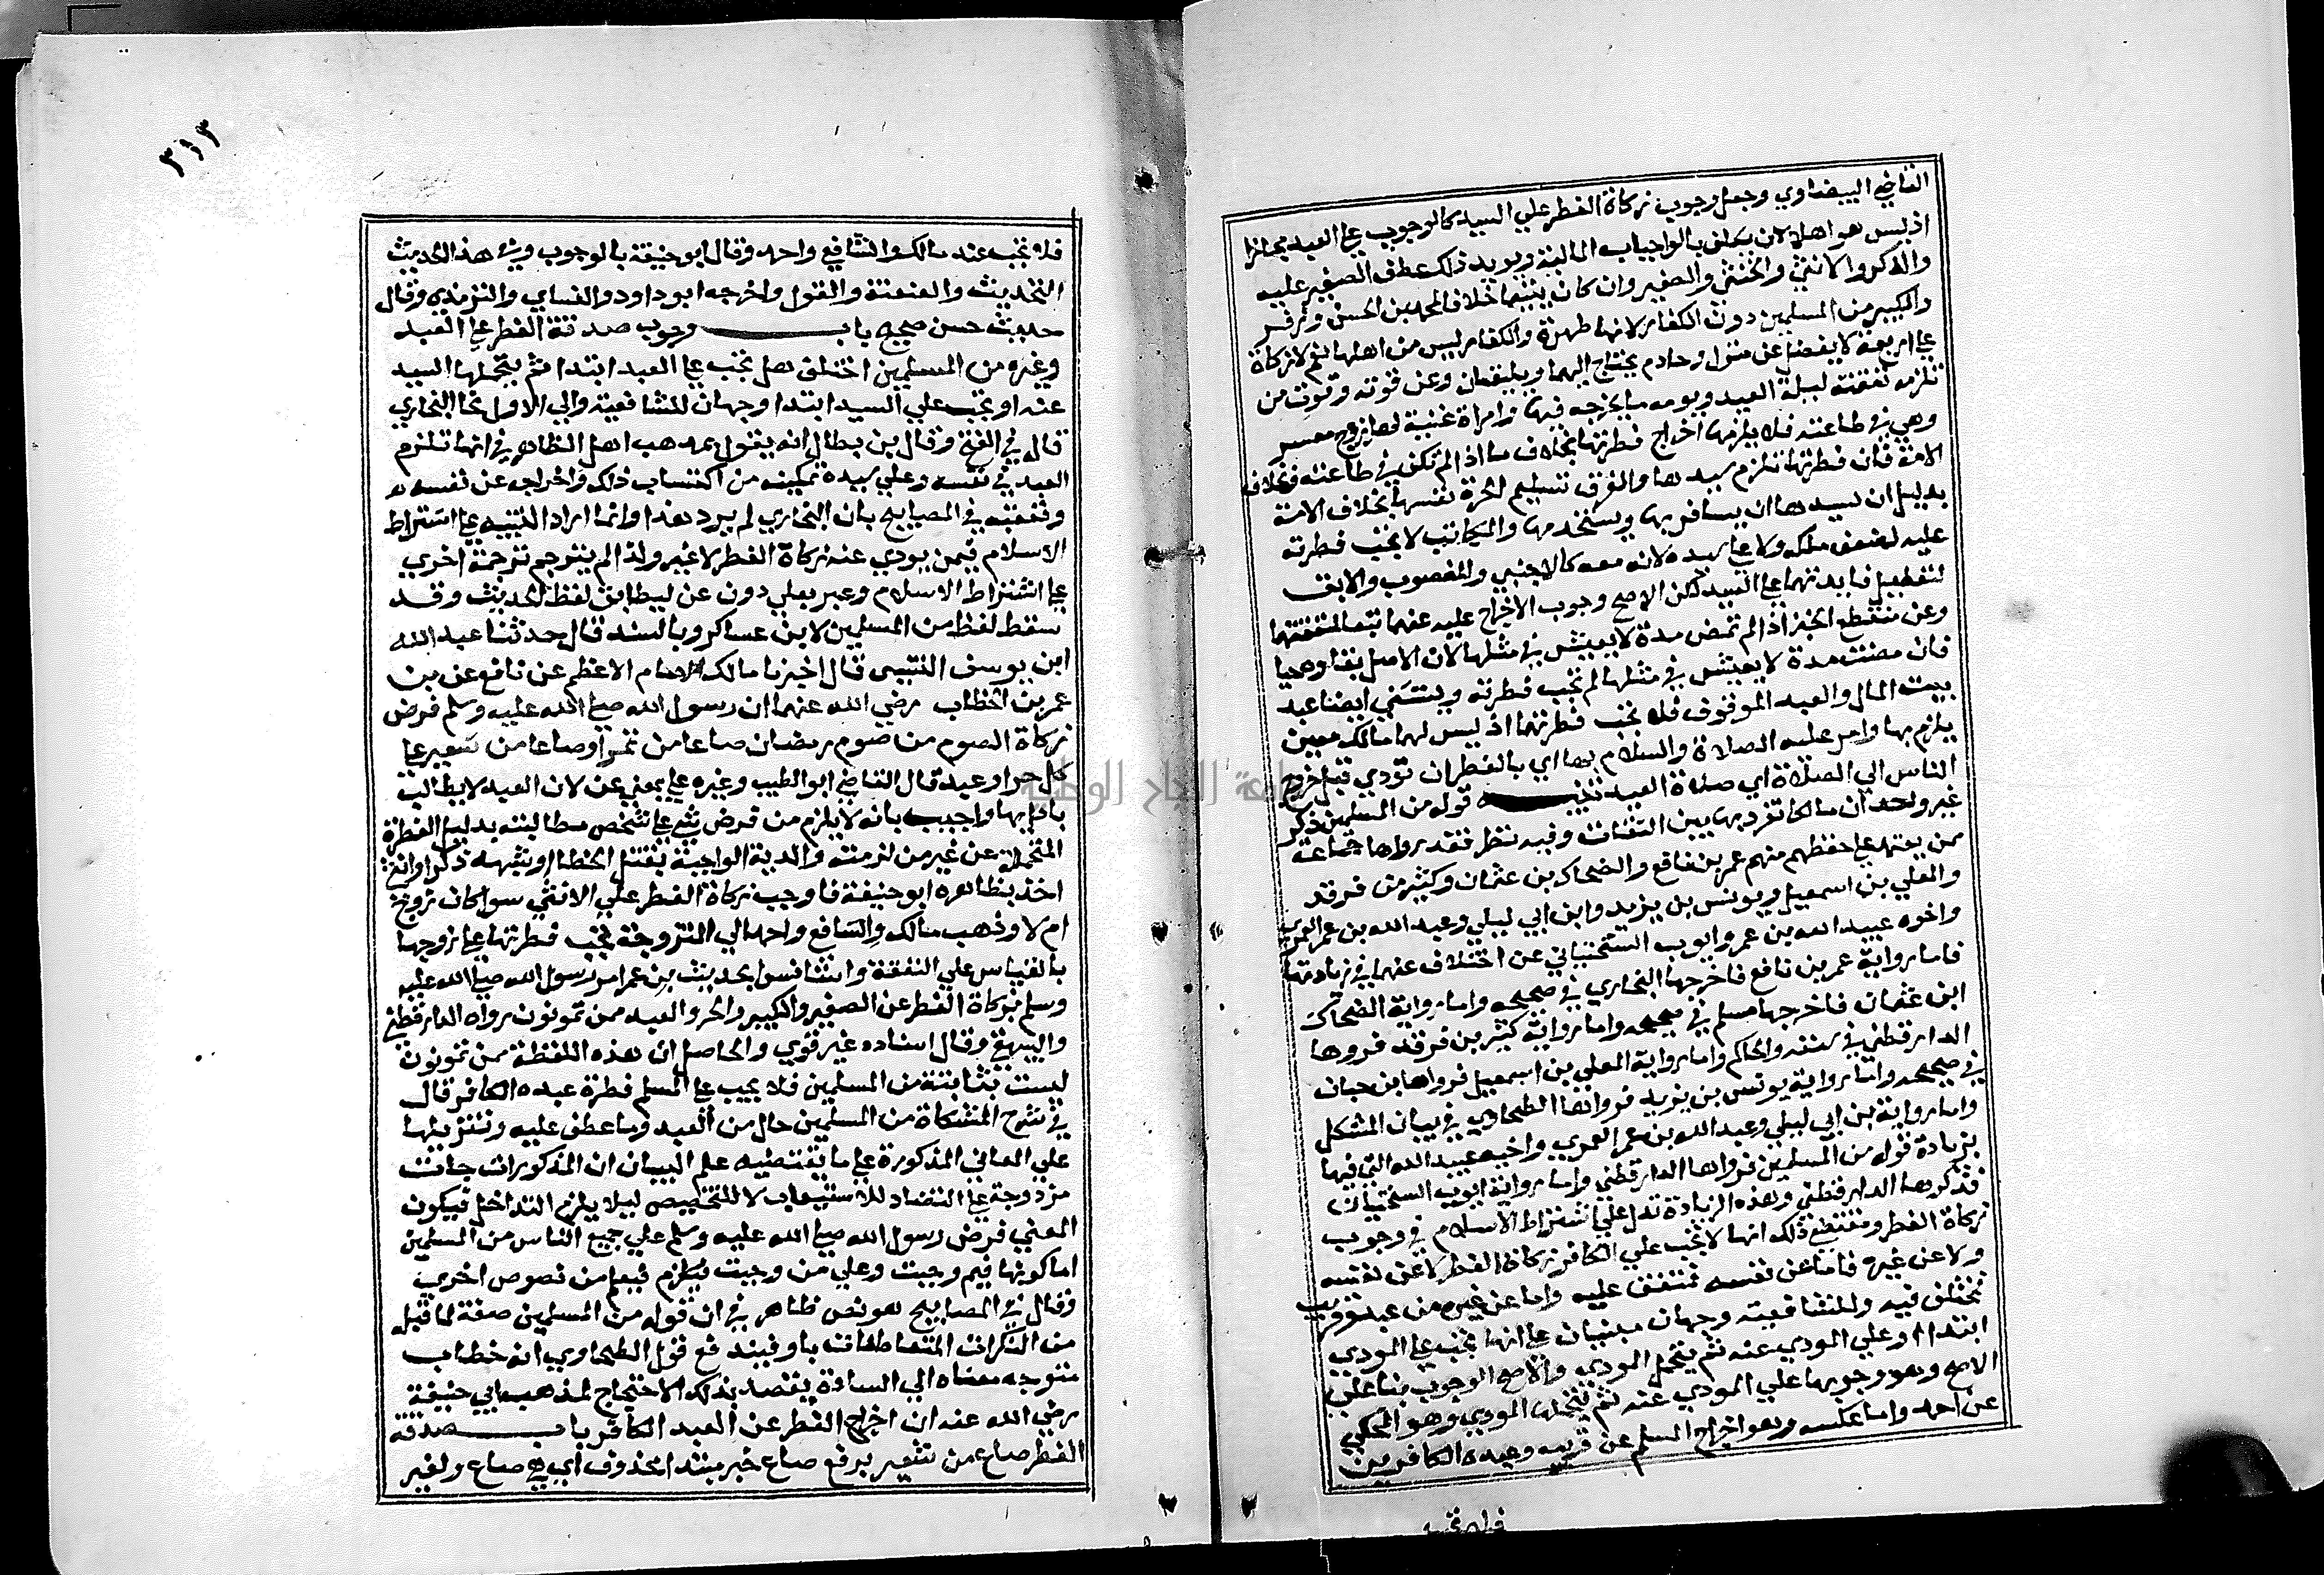 القاضي البيضاوي وجعل وجوب زكاة الفطر علي السيد كالوجوب علي العبد مجازا
اذ ليس هو اهلا لان يكلف بالواجبات المالية ويويد ذلك عطف الصغير عليه
والذكر والانثي والخنثي والصغير وان كان يتيما خلافا لمحمد بن الحسن وزفر
والكبير من المسلمين دون الكفار لانها طهرة والكفار ليس من اهلها نعم لا زكاة
علي اربعة لا يفضل عن منزل وخادم يحتاج اليهما ويليقان وعن قوته وقوت من
تلزمه نفقته ليلة العيد ويومه ما يخرجه فيها وامراة غنية لها زوج معسر
وهي في طاعته فلا يلزمها اخراج فطرتها بخلاف ما اذا لم تكن في طاعته وبخلاف
الامة فان فطرتها تلزم سيدها والفرق تسليم الحرة نفسها بخلاف الامة
بدليل ان لسيدها ان يسافر بها ويستخدمها والمكاتب لا تجب فطرته
عليه لضعف ملكه ولا علي سيده لانه معه كالاجنبي والمغصوب والابق
لتعطيل فايدتهما علي السيد لكن الاصح وجوب الاخراج عليه عنهما تبعا لنفقتهما
وعن منقطع الخبر اذا لم تمض مدة لا يعيش في مثلها لان الاصل بقاوه حيا
فان مضت مدة لا يعيش في مثلها لم تجب فطرته ويستثني ايضا عبد
بيت المال والعبد الموقوف فلا تجب فطرتهما اذ ليس لهما مالك معين
يلزم بها وامر عليه الصلاة والسلام بها اي بالفطر ان تؤدي قبل خروج
الناس الي الصلاة اي صلاة العيد تنبيه قوله من المسلمين ذكر
غير واحد ان مالكا تفرد بها بين الثقات وفيه نظر فقد رواها جماعة
ممن يعتمد علي حفظهم منهم عمر بن نافع والضحاك بن عثمان وكثير من فرقد
والمعلي بن اسمعيل ويونس بن يزيد وابن ابي ليلي وعبد الله بن عمر العمري
واخوه عبيد الله بن عمر وايوب السختياني عن اختلاف عنهما في زيادتها
فاما رواية عمر بن نافع فاخرجها البخاري في صحيحه واما رواية الضحاك
ابن عثمان فاخرجها مسلم في صحيحه واما رواية كثير بن فرقد فروها
الدارقطني في سننه والحاكم واما رواية المعلي بن اسمعيل فرواها بن حبان
في صحيحه واما رواية يونس بن يزيد فرواها الطحاوي في بيان المشكل
واما رواية بن ابي ليلي وعبد الله بن عمر العمري واخيه عبيد الله التي فيها
بزيادة قوله من المسلمين فرواها الدارقطني واما رواية ايوب السختياني
فذكرها الدارقطني وهذه الزيادة تدل علي اشتراط الاسلام في وجوب
زكاة الفطر ومقتضي ذلك انها لا تجب علي الكافر زكاة الفطر لا عن نفسه
ولا عن غيره فاما عن نفسه فمتفق عليه واما عن غيره من عبد وقريب
فمختلف فيه وللشافعية وجهان مبنيان علي انها تجب علي المودي
ابتداا او علي المودي عنه ثم يتحمل المودي والاصح الوجوب بنا علي
الاصح وهو وجوبها علي المودي عنه ثم يتحملها المودي وهو المحكي
عن احمد واما عكسه وهو اخراج المسلم عن قريبه وعبده الكافرين
فلا تجب
٣١٣
فلا تجب عند مالك والشافعي واحمد وقال ابو حنيفة بالوجوب وفي هذا الحديث
التحديث والعنعنة والقول واخرجه ابو داود والنساي والترمذي وقال
حديث حسن صحيح باب وجوب صدقة الفطر علي العبد
وغيره من المسلمين اختلف هل تجب علي العبد ابتدا ثم يتحملها السيد
عنه او تجب علي السيد ابتدا وجهان للشافعية والي الاول نحا البخاري
قال في الفتح وقال بن بطال انه يقول بمذهب اهل الظاهر في انها تلزم
العبد في نفسه وعلي سيده تمكينه من اكتساب ذلك واخراجه عن نفسه
وتعقبه في المصابيح بان البخاري لم يرد هذا وانما اراد التنبيه علي اشتراط
الاسلام فيمن يودي عنه زكاة الفطر لا غير ولذا لم يترجم ترجمة اخري
علي اشتراط الاسلام وعبر بعلي دون عن ليطابق لفظ الحديث وقد
سقط لفظ من المسلمين لابن عساكر وبالسند قال حدثنا عبد الله
ابن يوسف التنيسي قال اخبرنا مالك الامام الاعظم عن نافع عن بن
عمر بن الخطاب رضي الله عنهما ان رسول الله صلي الله عليه وسلم فرض
زكاة الصوم من صوم رمضان صاعا من تمر او صاعا من شعير علي
كل حر او عبد قال القاضي ابو الطيب وغيره علي بمعني عن لان العبد لا يطالب
بادايها واجيب بانه لا يلزم من فرض شي علي شخص مطالبته بدليل الفطرة
المتحملة عن غير من لزمته والدية الواجبة بقتل الخطا او شبهه ذكر او انثي
اخذ بظاهره ابو حنيفة فاوجب زكاة الفطر علي الانثي سوا كان لها زوج
ام لا وذهب مالك والشافعي واحمد الي ان المتزوجة تجب فطرتها علي زوجها
بالقياس علي النفقة واستانسوا بحديث بن عمر امر رسول الله صلي الله عليه
وسلم بزكاة الفطر عن الصغير والكبير والحر والعبد ممن تمونون رواه الدارقطني
والبيهقي وقال اسناده غير قوي والحاصل ان هذه اللفظة ممن تمونون
ليست بثابتة من المسلمين فلا يجب علي المسلم فطرة عبده الكافر قال
في شرح المشكاة من المسلمين حال من العبد وما عطف عليه وتنزيلها
علي المعاني المذكورة علي ما يقتضيه علم البيان ان المذكورات جات
مزدوجة علي التضاد للاستيعاب لا للتخصيص ليلا يلزم التداخل فيكون
المعني فرض رسول الله صلي الله عليه وسلم علي جميع الناس من المسلمين
اما كونها فيم وجبت وعلي من وجبت فيعلم من نصوص اخري
وقال في المصابيح هو نص ظاهر في ان قوله من المسلمين صفة لما قبله
من النكرات المتعاطفات باو فيندفع قول الطحاوي انه خطاب
متوجه معناه الي السادة يقصد بذلك الاحتجاج لمذهب ابي حنيفة
رضي الله عنه ان اخراج الفطر عن العبد الكافر باب صدقة
الفطر صاع من شعير برفع صاع خبر مبتدا محذوف اي هي صاع ولغير